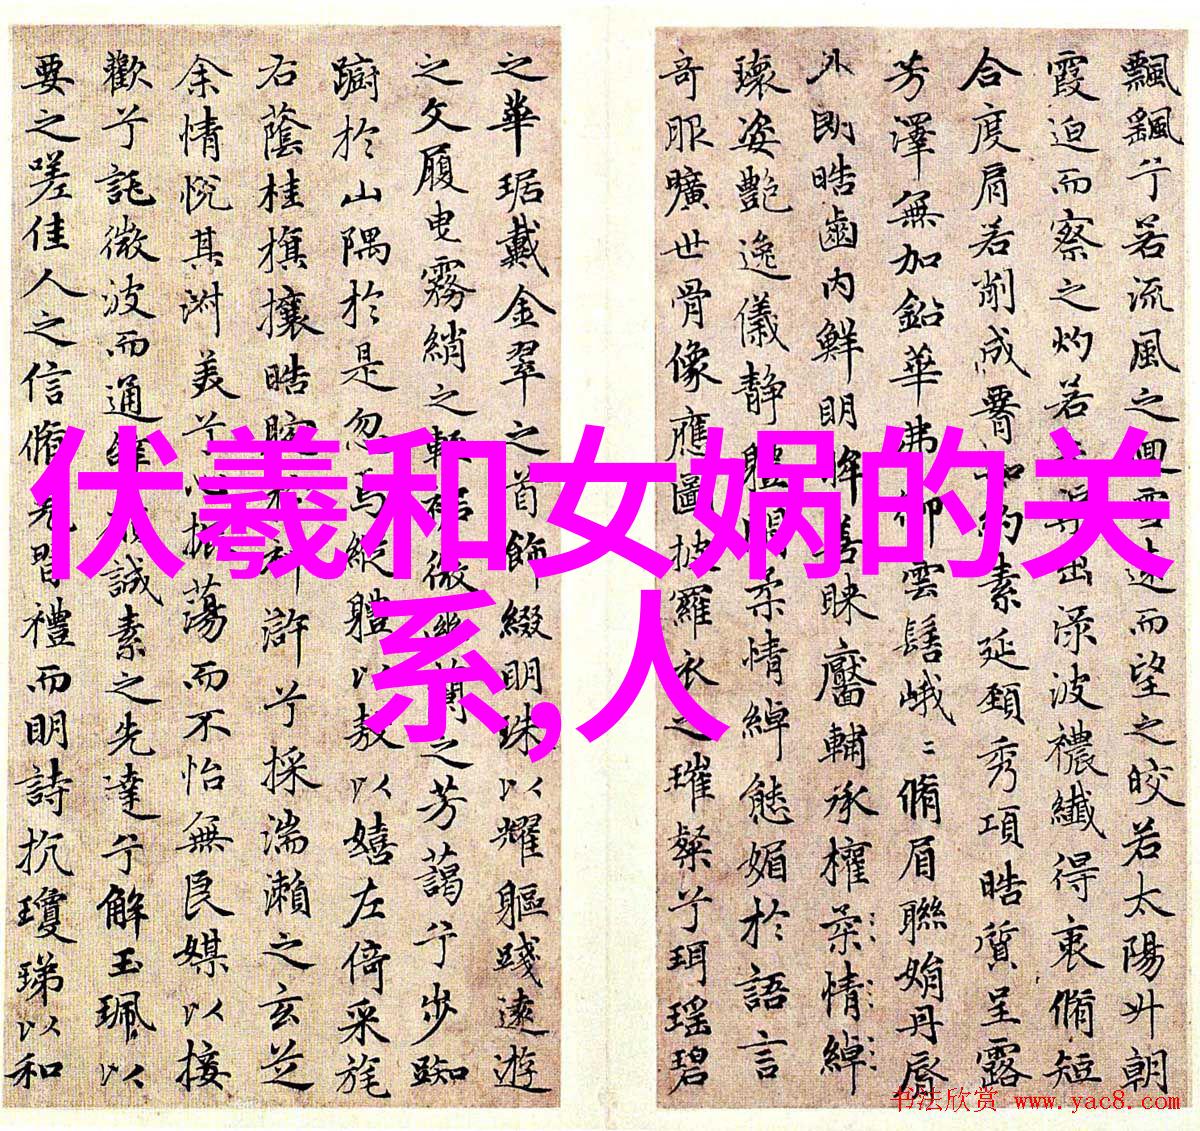 飄飖兮若流風之迴雪遠而望之皎若太陽升朝
霞迫而察之灼若芙蕖出淥波禯纖得衷脩短
合度肩若削成署如約素延頚秀項晧質呈露
芳澤無加鉛華弗御雲髻峨﹕脩眉聯娟丹脣
外朗皓齒内鮮明眸善睐靨輔承權柔情綽
瓌姿艷逸儀静體閑柔情綽態媚於語言
奇服曠世骨像應圖披羅衣之璀粲兮珥瑶碧
之華琚戴金翠之首飾綴明珠以耀軀踐遠遊
之文履曳霧綃之輕裾微幽蘭之芳藹兮步踟
蹰於山隅於是忽焉縱體以敖以嬉左倚采旄
右蔭桂旗攘皓腕於神滸兮採湍瀨之玄芝
余情悅其淑美兮心振蕩而不怡無良媒以接
歡兮託微波而通辭願誠素之先達兮解玉珮以
要之嗟佳人之信脩羌習禮而明詩抗瓊珶以和
伏羲和女娲的关
系,人
书法欣赏 www.yac8.com